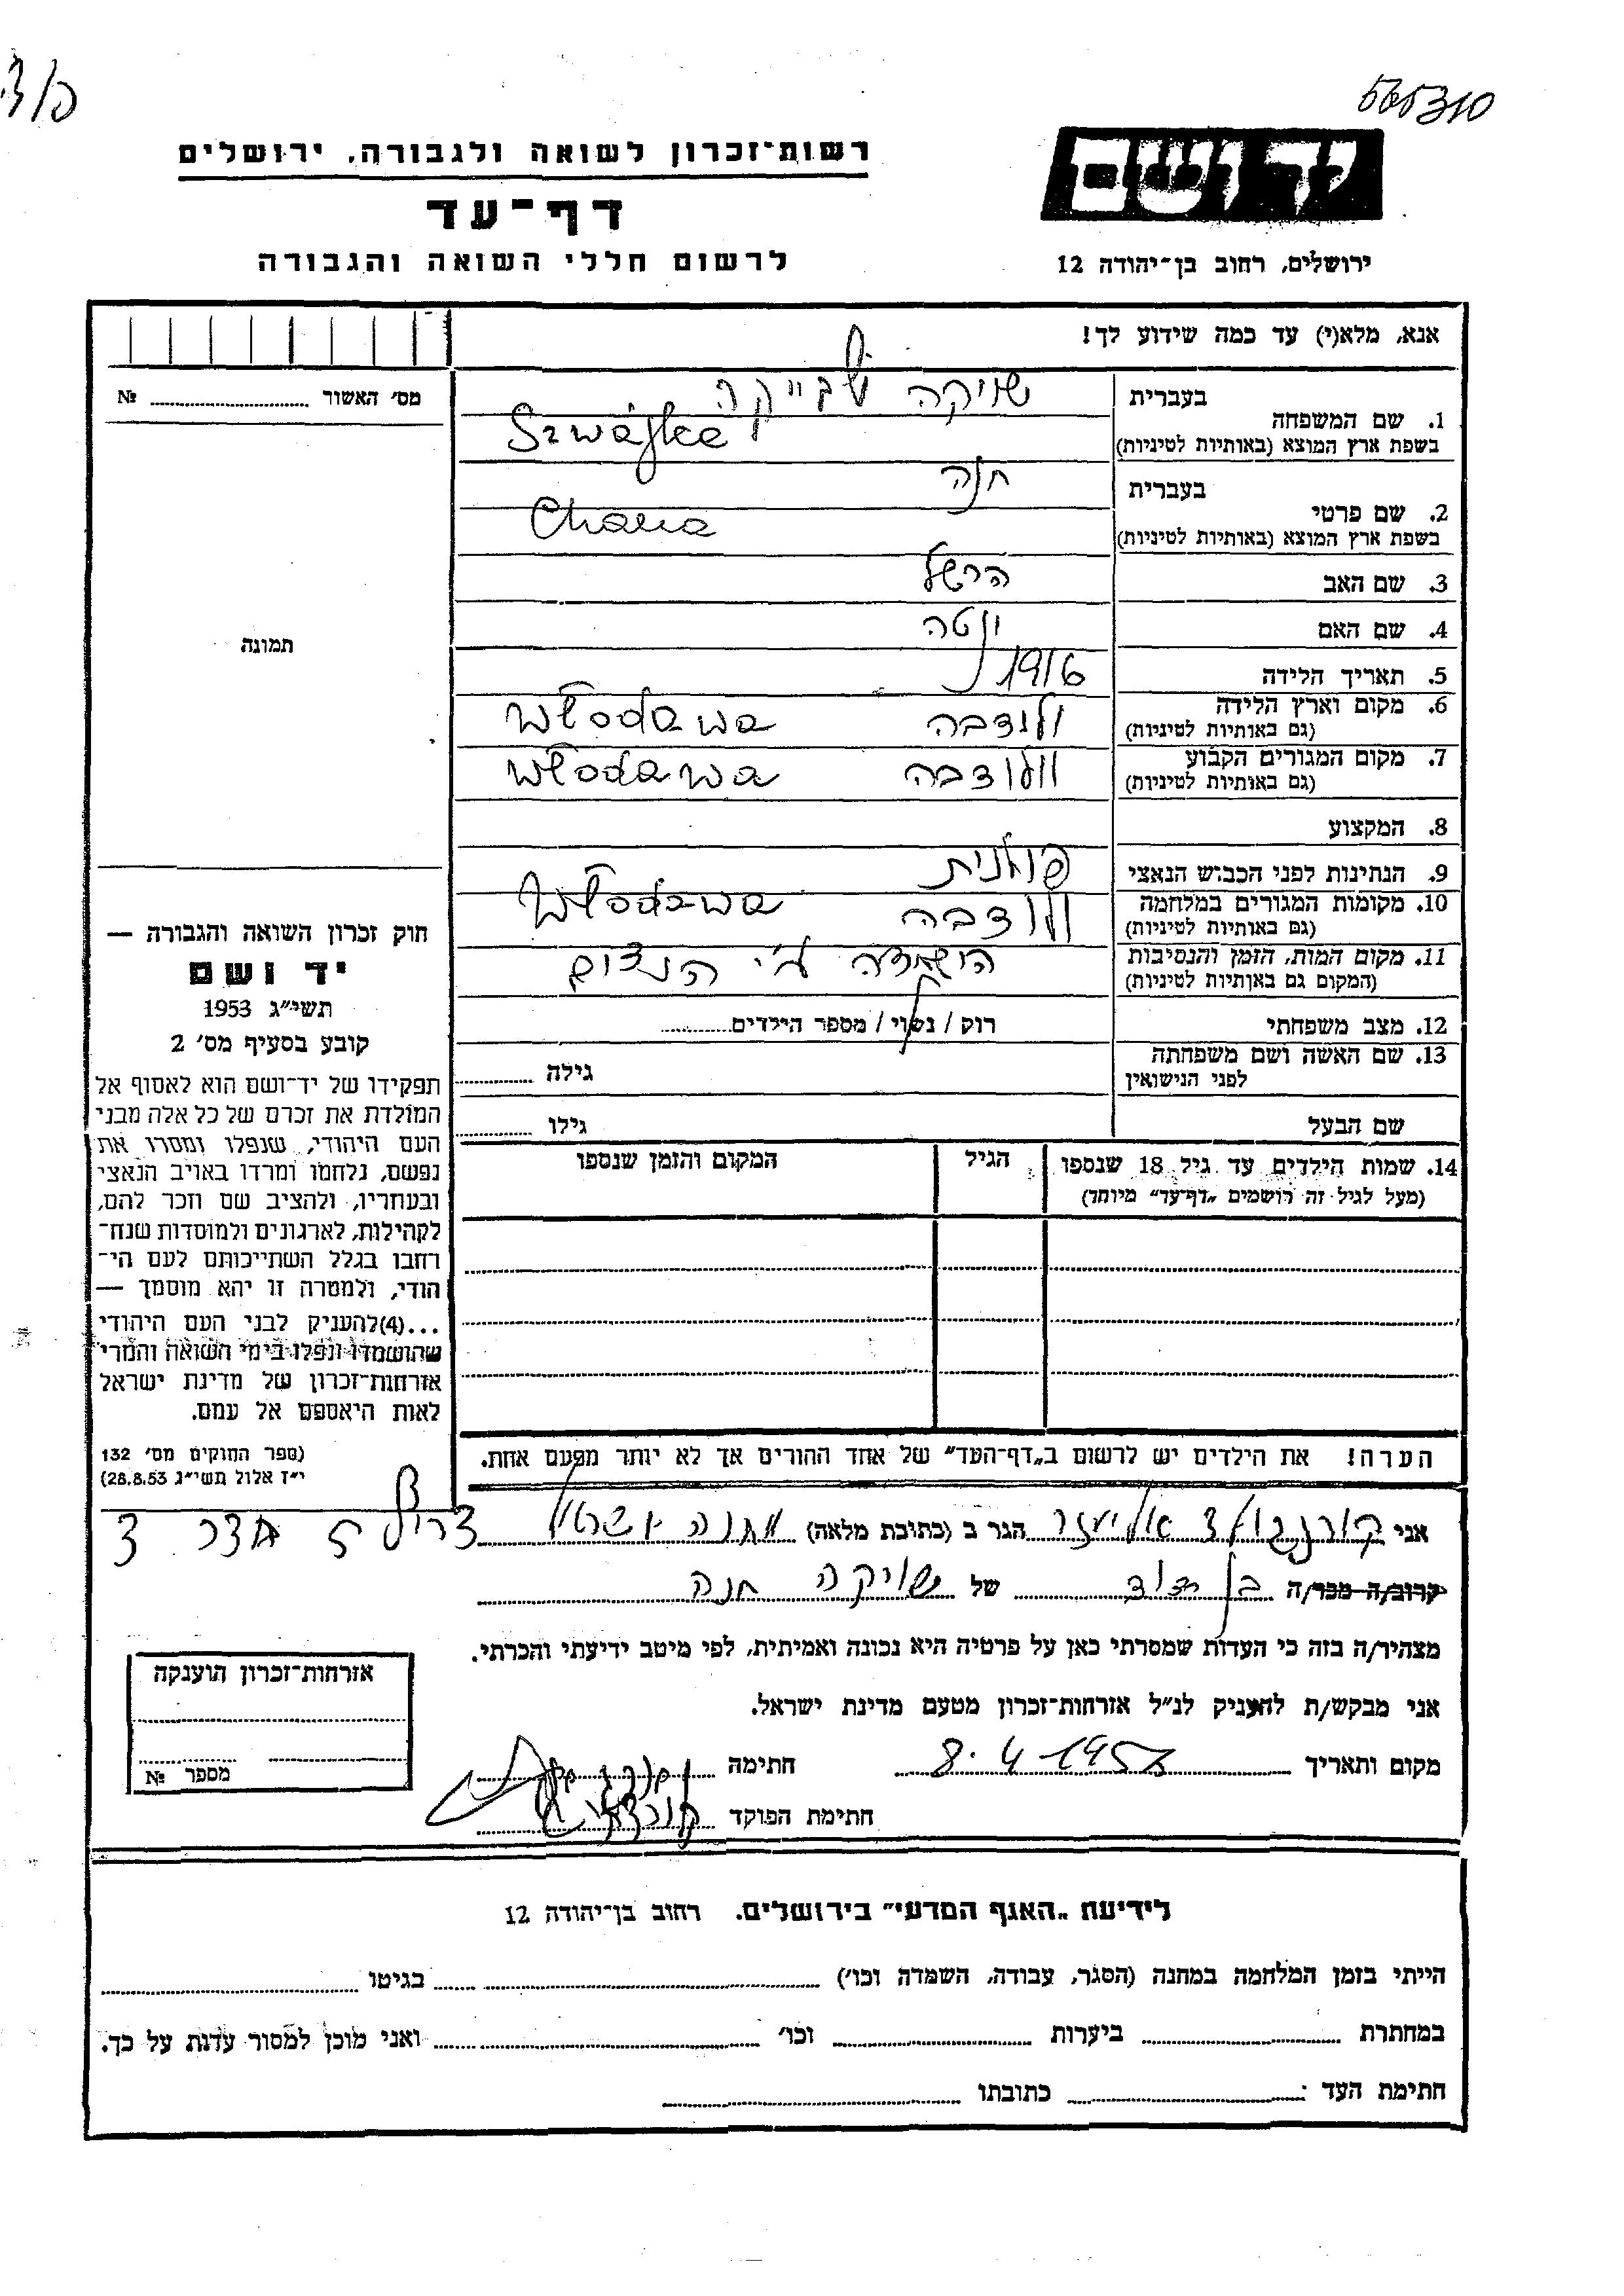 565310
רשות־זכרון לשואה ולגבורה, ירושלים
יד ושם
דף־עד
לרשום חללי השואה והגבורה
ירושלים, רחוב בן־יהודה 12
אנא, מלא(י) עד כמה שידוע לך!
מס׳ האשור ........ №
תמונה
1. שם המשפחה
בעברית שויקה שבייקה
בשפת ארץ המוצא (באותיות לטיניות) Szwajka
2. שם פרטי
בעברית חנה
בשפת ארץ המוצא (באותיות לטיניות) Chana
3. שם האב הרשל
4. שם האם יטה
5. תאריך הלידה 1916
6. מקום וארץ הלידה ולודבה Włodawa
(גם באותיות לטיניות)
7. מקום המגורים הקבוע וולודבה Włodawa
(גם באותיות לטיניות)
8. המקצוע
9. הנתינות לפני הכבוש הנאצי פולנית
10. מקומות המגורים במלחמה ולודבה Włodawa
(גם באותיות לטיניות)
11. מקום המות, הזמן והנסיבות הושמדה ע״י הנאצים
(המקום גם באותיות לטיניות)
12. מצב משפחתי רוק / נשוי / מספר הילדים........
13. שם האשה ושם משפחתה
לפני הנישואין גילה ........
שם הבעל גילו ........
14. שמות הילדים עד גיל 18 שנספו הגיל המקום והזמן שנספו
(מעל לגיל זה רושמים „דף־עד״ מיוחד)
הערה! את הילדים יש לרשום ב„דף־העד״ של אחד ההורים אך לא יותר מפעם אחת.
חוק זכרון השואה והגבורה —
יד ושם
תשי״ג 1953
קובע בסעיף מס׳ 2
תפקידו של יד־ושם הוא לאסוף אל
המולדת את זכרם של כל אלה מבני
העם היהודי, שנפלו ומסרו את
נפשם, נלחמו ומרדו באויב הנאצי
ובעוזריו, ולהציב שם וזכר להם,
לקהילות, לארגונים ולמוסדות שנח־
רבו בגלל השתייכותם לעם הי־
הודי, ולמטרה זו יהא מוסמך —
...(4)להעניק לבני העם היהודי
שהושמדו ונפלו בימי השואה והמרי
אזרחות־זכרון של מדינת ישראל
לאות היאספם אל עמם.
(ספר החוקים מס׳ 132
י״ז אלול תשי״ג 28.8.53)
אני אליעזר הגר ב (כתובת מלאה) מחנה צריף
קרוב/ה מכר/ה בן דוד של שויקה חנה
מצהיר/ה בזה כי העדות שמסרתי כאן על פרטיה היא נכונה ואמיתית, לפי מיטב ידיעתי והכרתי.
אני מבקש/ת להעניק לנ״ל אזרחות־זכרון מטעם מדינת ישראל.
מקום ותאריך 8.4.195 חתימה
חתימת הפוקד
אזרחות־זכרון הוענקה
מספר №
לידיעת „האגף המדעי״ בירושלים, רחוב בן־יהודה 12
הייתי בזמן המלחמה במחנה (הסגר, עבודה, השמדה וכו׳) ........ בגיטו ........
במחתרת ........ ביערות ........ וכו׳ ........ ואני מוכן למסור עדות על כך.
חתימת העד : ........ כתובתו ........